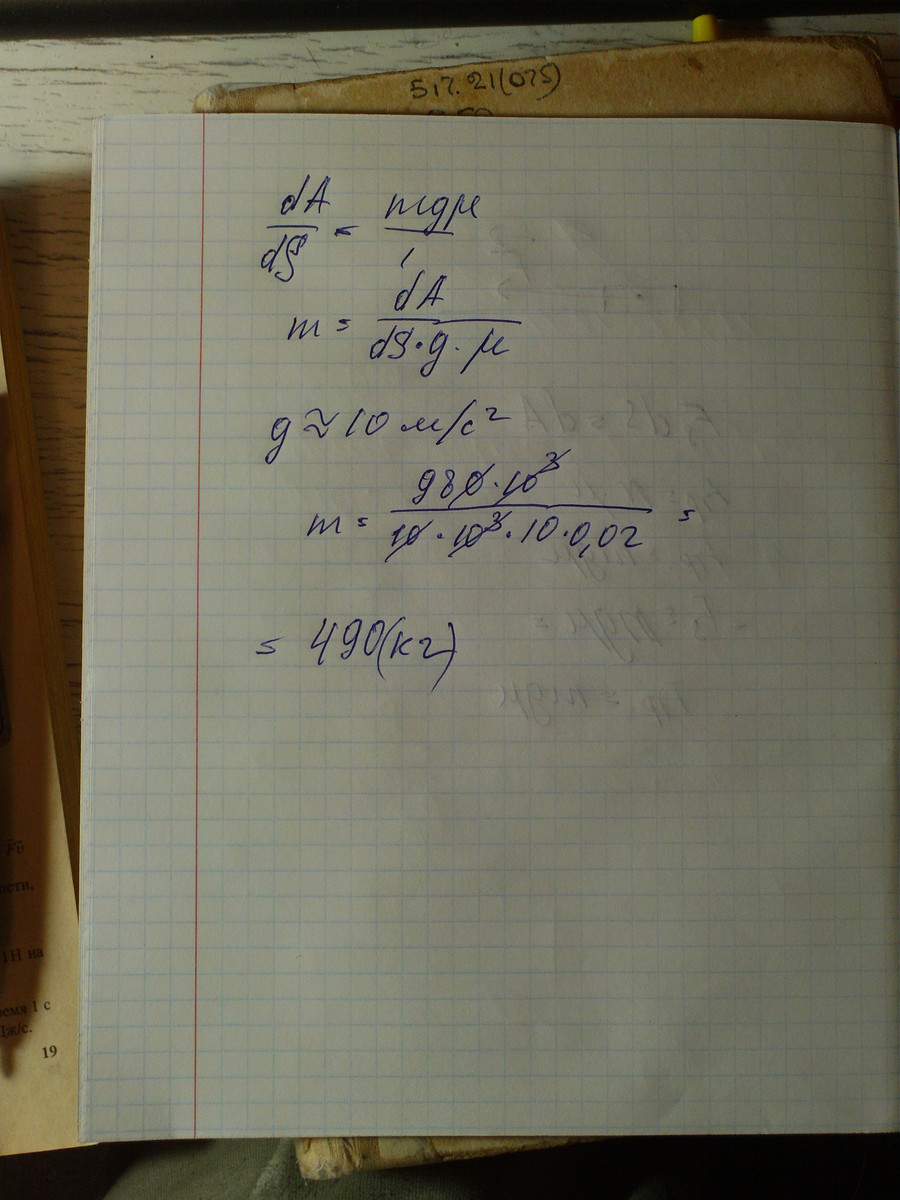 517.21(075)
dA/dS = mgμ/1
m = dA/(dS·g·μ)
g ≈ 10 м/с²
m = 980·10³/(10·10³·10·0,02) =
= 490(кг)
ости,
1Н на
ремя 1 с
Дж/с.
19